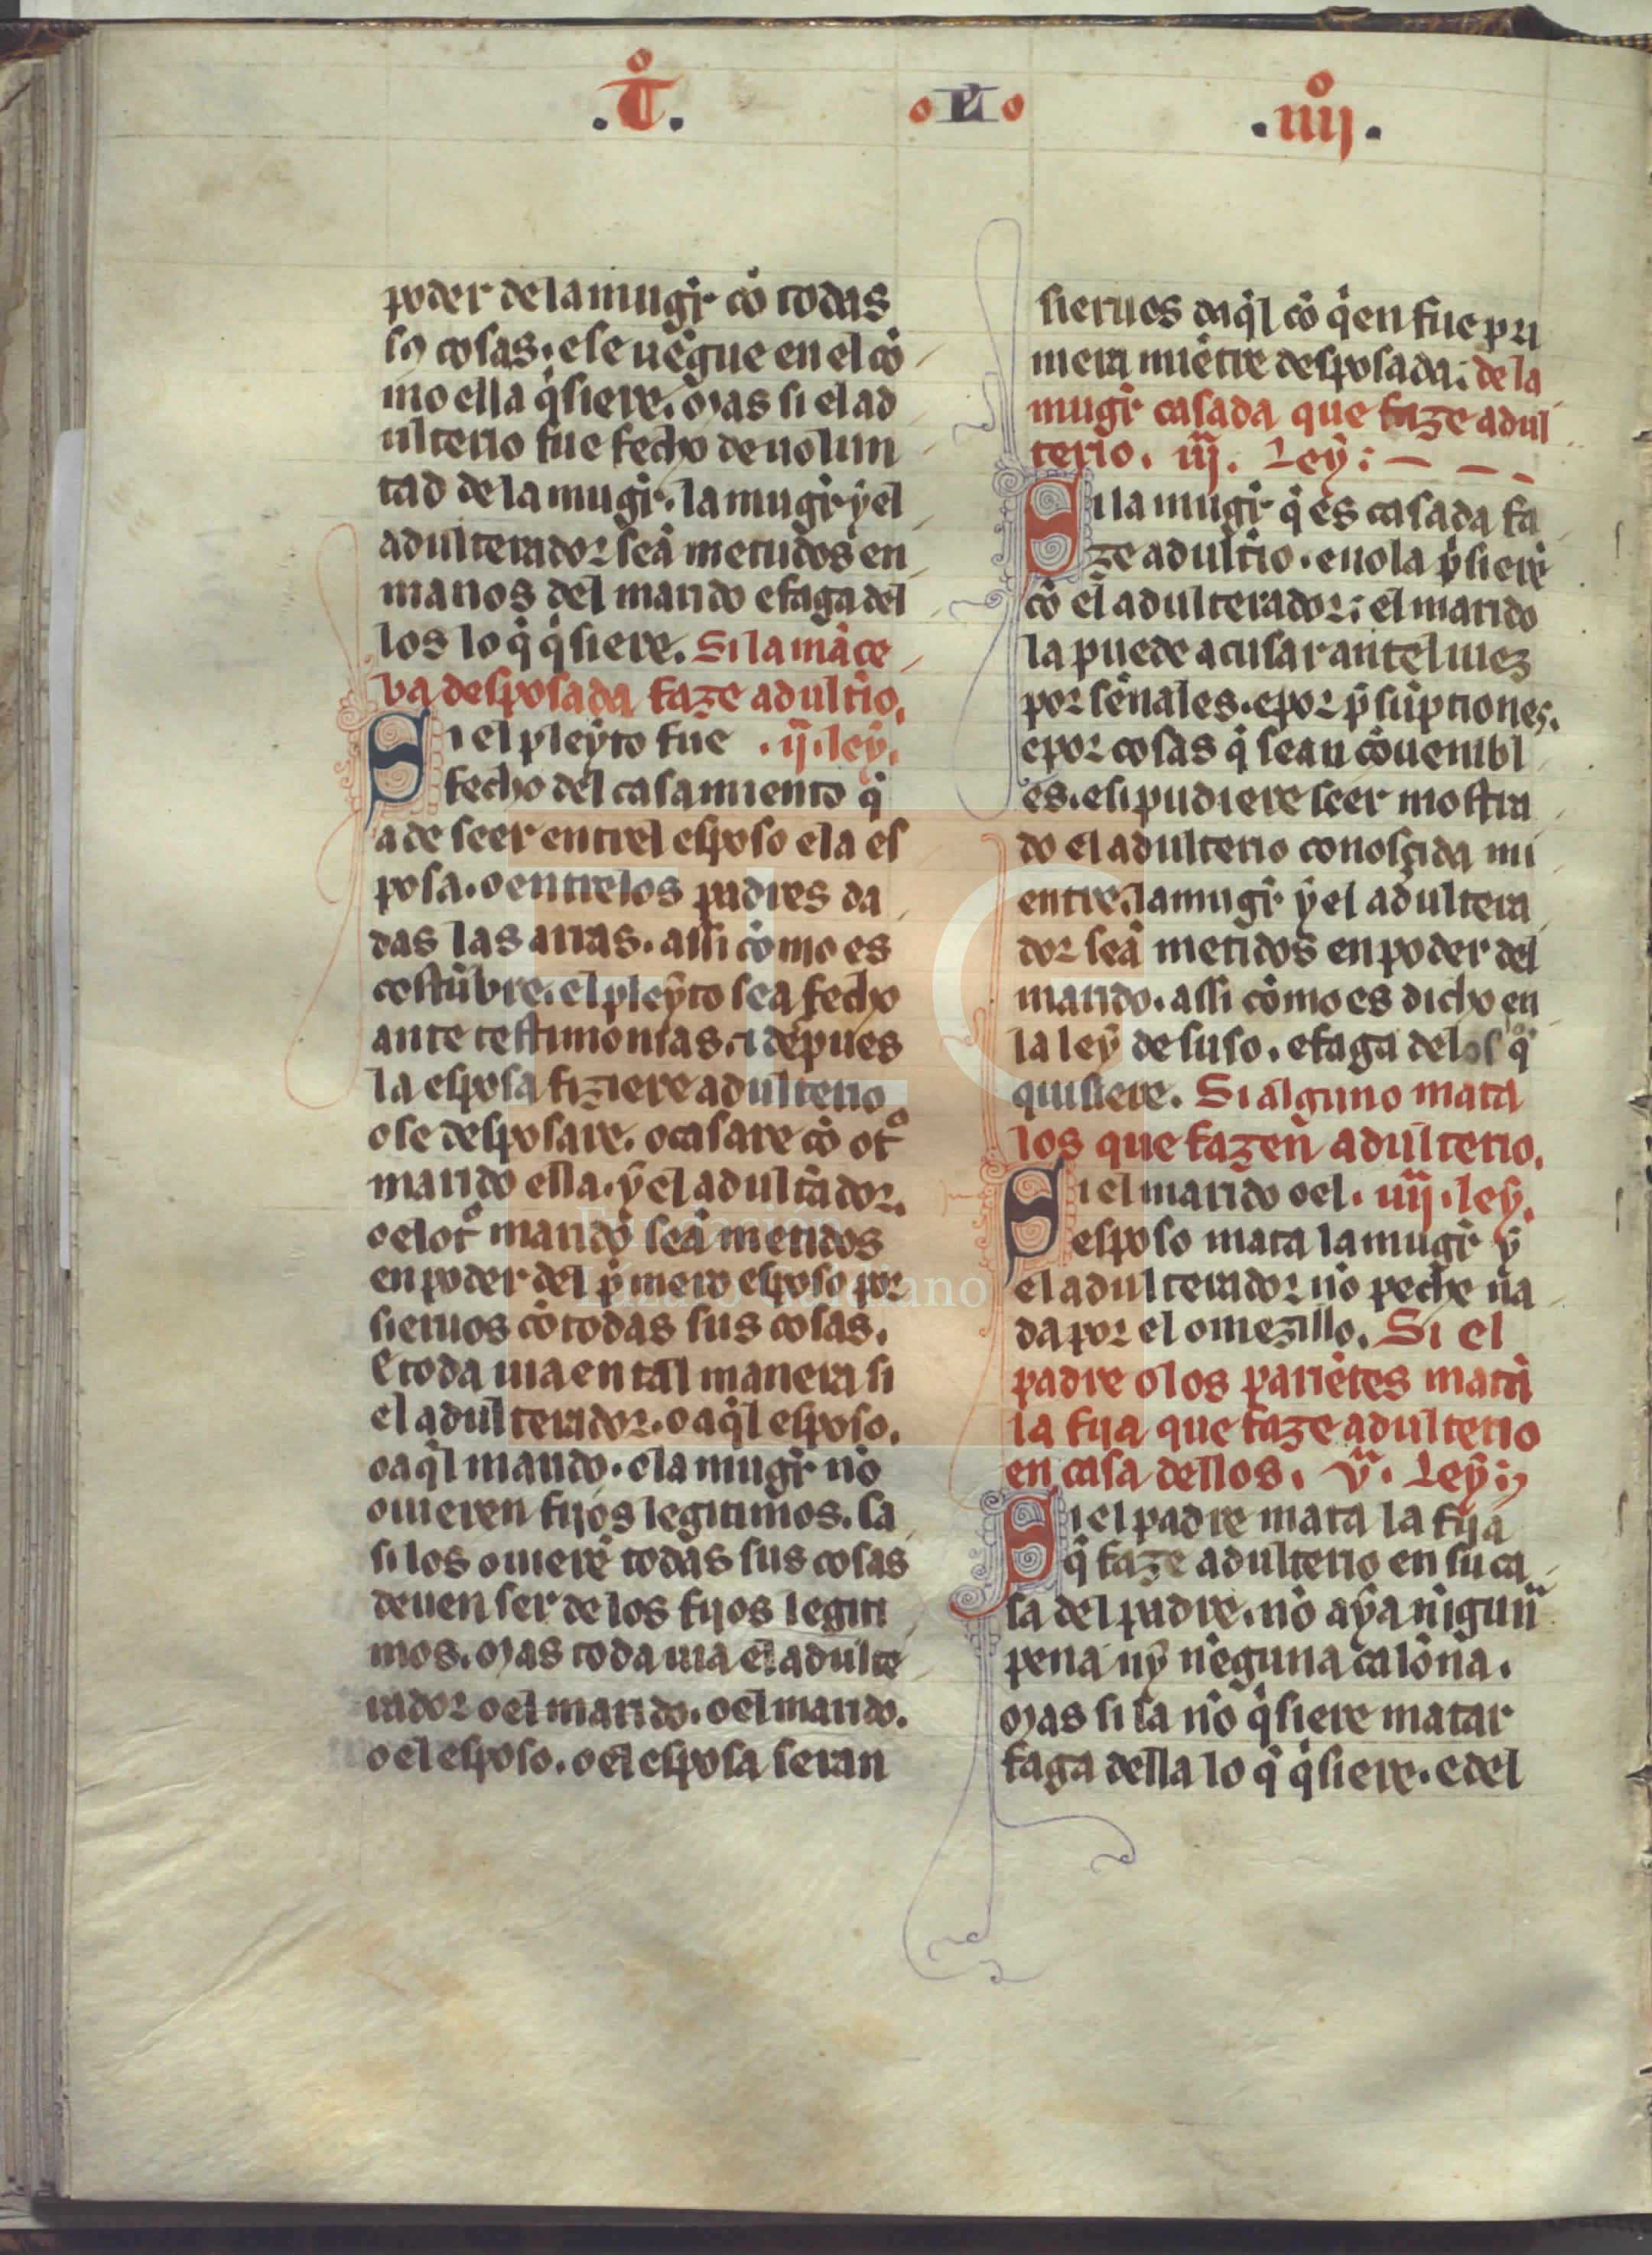 .T̊.
L
.iiij̊.
poder dela mugͥr cō todas
sꝯ cosas. e se uēgue en el cō
mo ella qͥsiere. Mas si el ad
ulterio fue fecho de uolun
tad de la mugͥr. la mugͥr ẏ el
adulterador seā metudos en
manos del marido e faga del
los lo q̄ qͥsiere. Si la māce
ba desposada faze adult̄io.
Si el pleẏto fue .ij. leẏ.
fecho del casamiento q̄
a de seer entrel esposo e la es
posa. o entre los padres da
das las arras. assi cōmo es
costūbre. el pleẏto sea fecho
ante testimonias. ⁊ depues
la esposa fiziere adulterio
o se desposare. o casare cō otͦ
marido ella. ẏ el adult̄ador.
o el otͦ marido seā metidos
en poder del pͥmero esposo por
sieruos cō todas sus cosas.
E toda uia en tal manera si
el adulterador. o aq̄l esposo.
o aq̄l marido. e la mugͥr nō
ouieren fijos legitimos. ca
si los ouierē todas sus cosas
deuen ser de los fijos legiti
mos. Mas toda uia el adulte
rador o el marido. o el marido.
o el esposo. o el esposa seran
sieruos daq̄l cō qͥen fue pri
mera miētre desposada. de la
mugͥr casada que faze adul
terio. iij. Leẏ:
Si la mugͥr q̄ es casada fa
ze adult̄io. e nola pͥsierē
cō el adulterador: el marido
la puede acusar antel iuez
por sēnales. e por p̄sūptiones.
e por cosas q̄ sean cōuenibl
es. e si pudiere seer mostra
do el adulterio conosçida mi
entre. la mugͥr ẏ el adultera
dor seā metidos en poder del
marido. assi cōmo es dicho en
la leẏ de suso. e faga delos q̄
quisiere. Si alguno mata
los que fazen adulterio.
Si el marido o el. iiij. leẏ.
esposo mata la mugͥr ẏ
el adulterador nō peche na
da por el omezillo. Si el
padre o los pariētes matā
la fija que faze adulterio
en casa dellos. v. Leẏ:
Si el padre mata la fija
q̄ faze adulterio en su ca
sa del padre. nō aẏa nīgūa
pena nẏ nēguna calōna.
Mas si la nō qͥsiere matar
faga della lo q̄ qͥsiere. e del
FLG
Fundación
Lázaro Galdiano